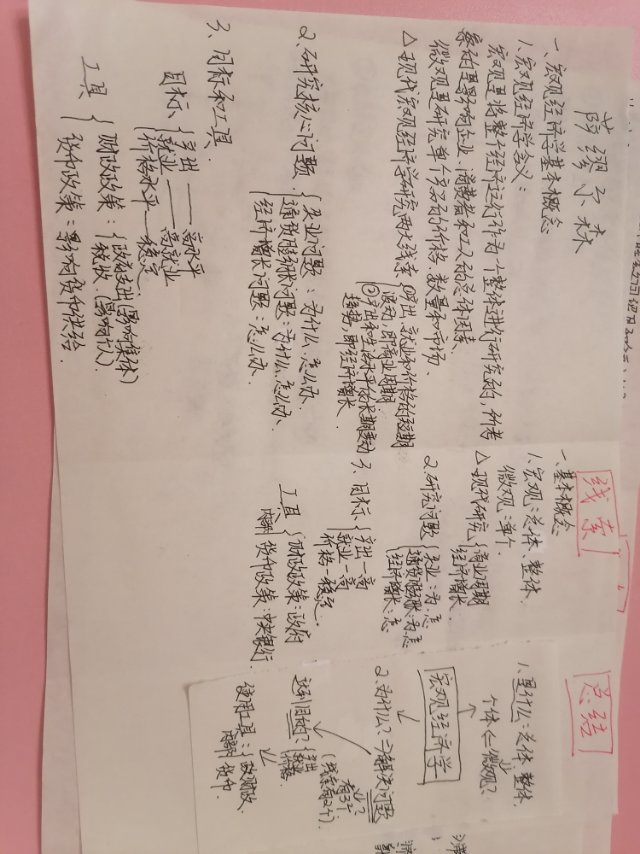 萨缪尔森
一、宏观经济学基本概念
1、宏观经济学含义:
宏观是将整个经济运行作为一个整体进行研究的,所考
察的是影响企业、消费者和工人的总体因素.
微观是研究单个产品的价格、数量和市场.
△现代宏观经济学研究两大线索
①产出、就业和价格的短期
波动,即商业周期
②产出和生活水平的长期变动
趋势,即经济增长
2、研究核心问题
失业问题:为什么、怎么办、
通货膨胀问题:为什么、怎么办、
经济增长问题:怎么办、
3、目标和工具、
目标、
产出——高水平
就业——高就业
价格水平—稳定
工具
财政政策:
政府支出(影响集体)
税收(影响个人)
货币政策:影响货币供给.
线索
一、基本概念
1、宏观:总体、整体、
微观:单个、
△现代研究
商业周期
经济增长、
2、研究问题
失业:为、怎
通货膨胀:为、怎
经济增长:怎
3、目标、
产出—高
就业—高
价格—稳定、
工具
财政政策:政府
货币政策:中央银行
总结
1、是什么:总体、整体、
个体(=微观?
宏观经济学
2、为什么?=>解决问题
有3个
达到目的?
产出
就业
价格
使用工具:
财政
货币.